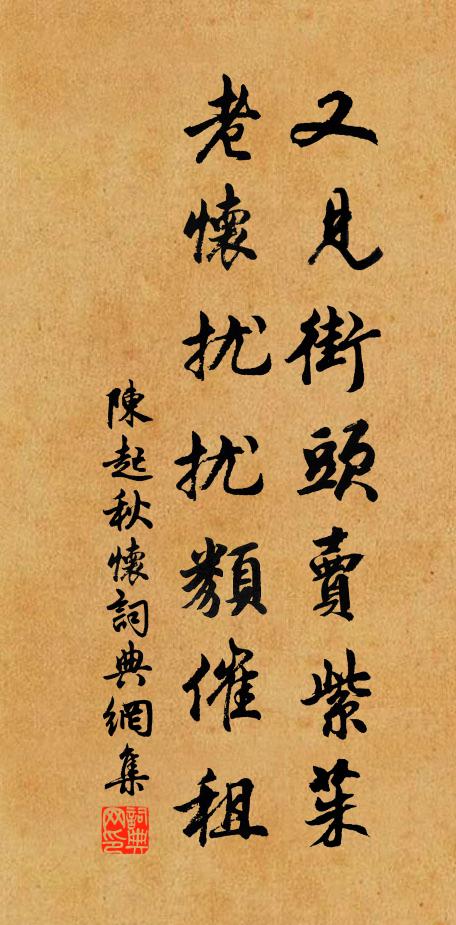 又見街頭賣紫茱
老懷扰扰類催租
陳起秋懷詞典網集
詞典網印